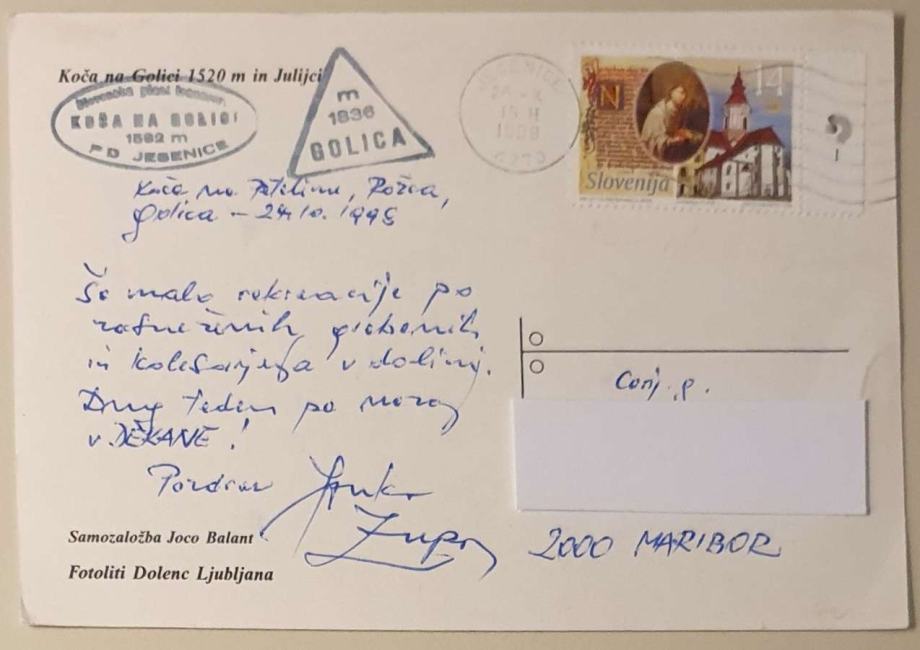 Koča na Golici 1520 m in Julijci
KOČA NA GOLICI
1582 m
PD JESENICE
m
1836
GOLICA
JESENICE
1998
N
14
Slovenija
Koča na Rožca,
Golica – 24.10.1998
Še malo rekreacije po
zasneženih grebenih
in kolesarjenja v dolini.
Drug teden pa morag
v DEKANE!
Pozdrav Janko
Zupan
Conj. g.
2000 MARIBOR
Samozaložba Joco Balant
Fotoliti Dolenc Ljubljana